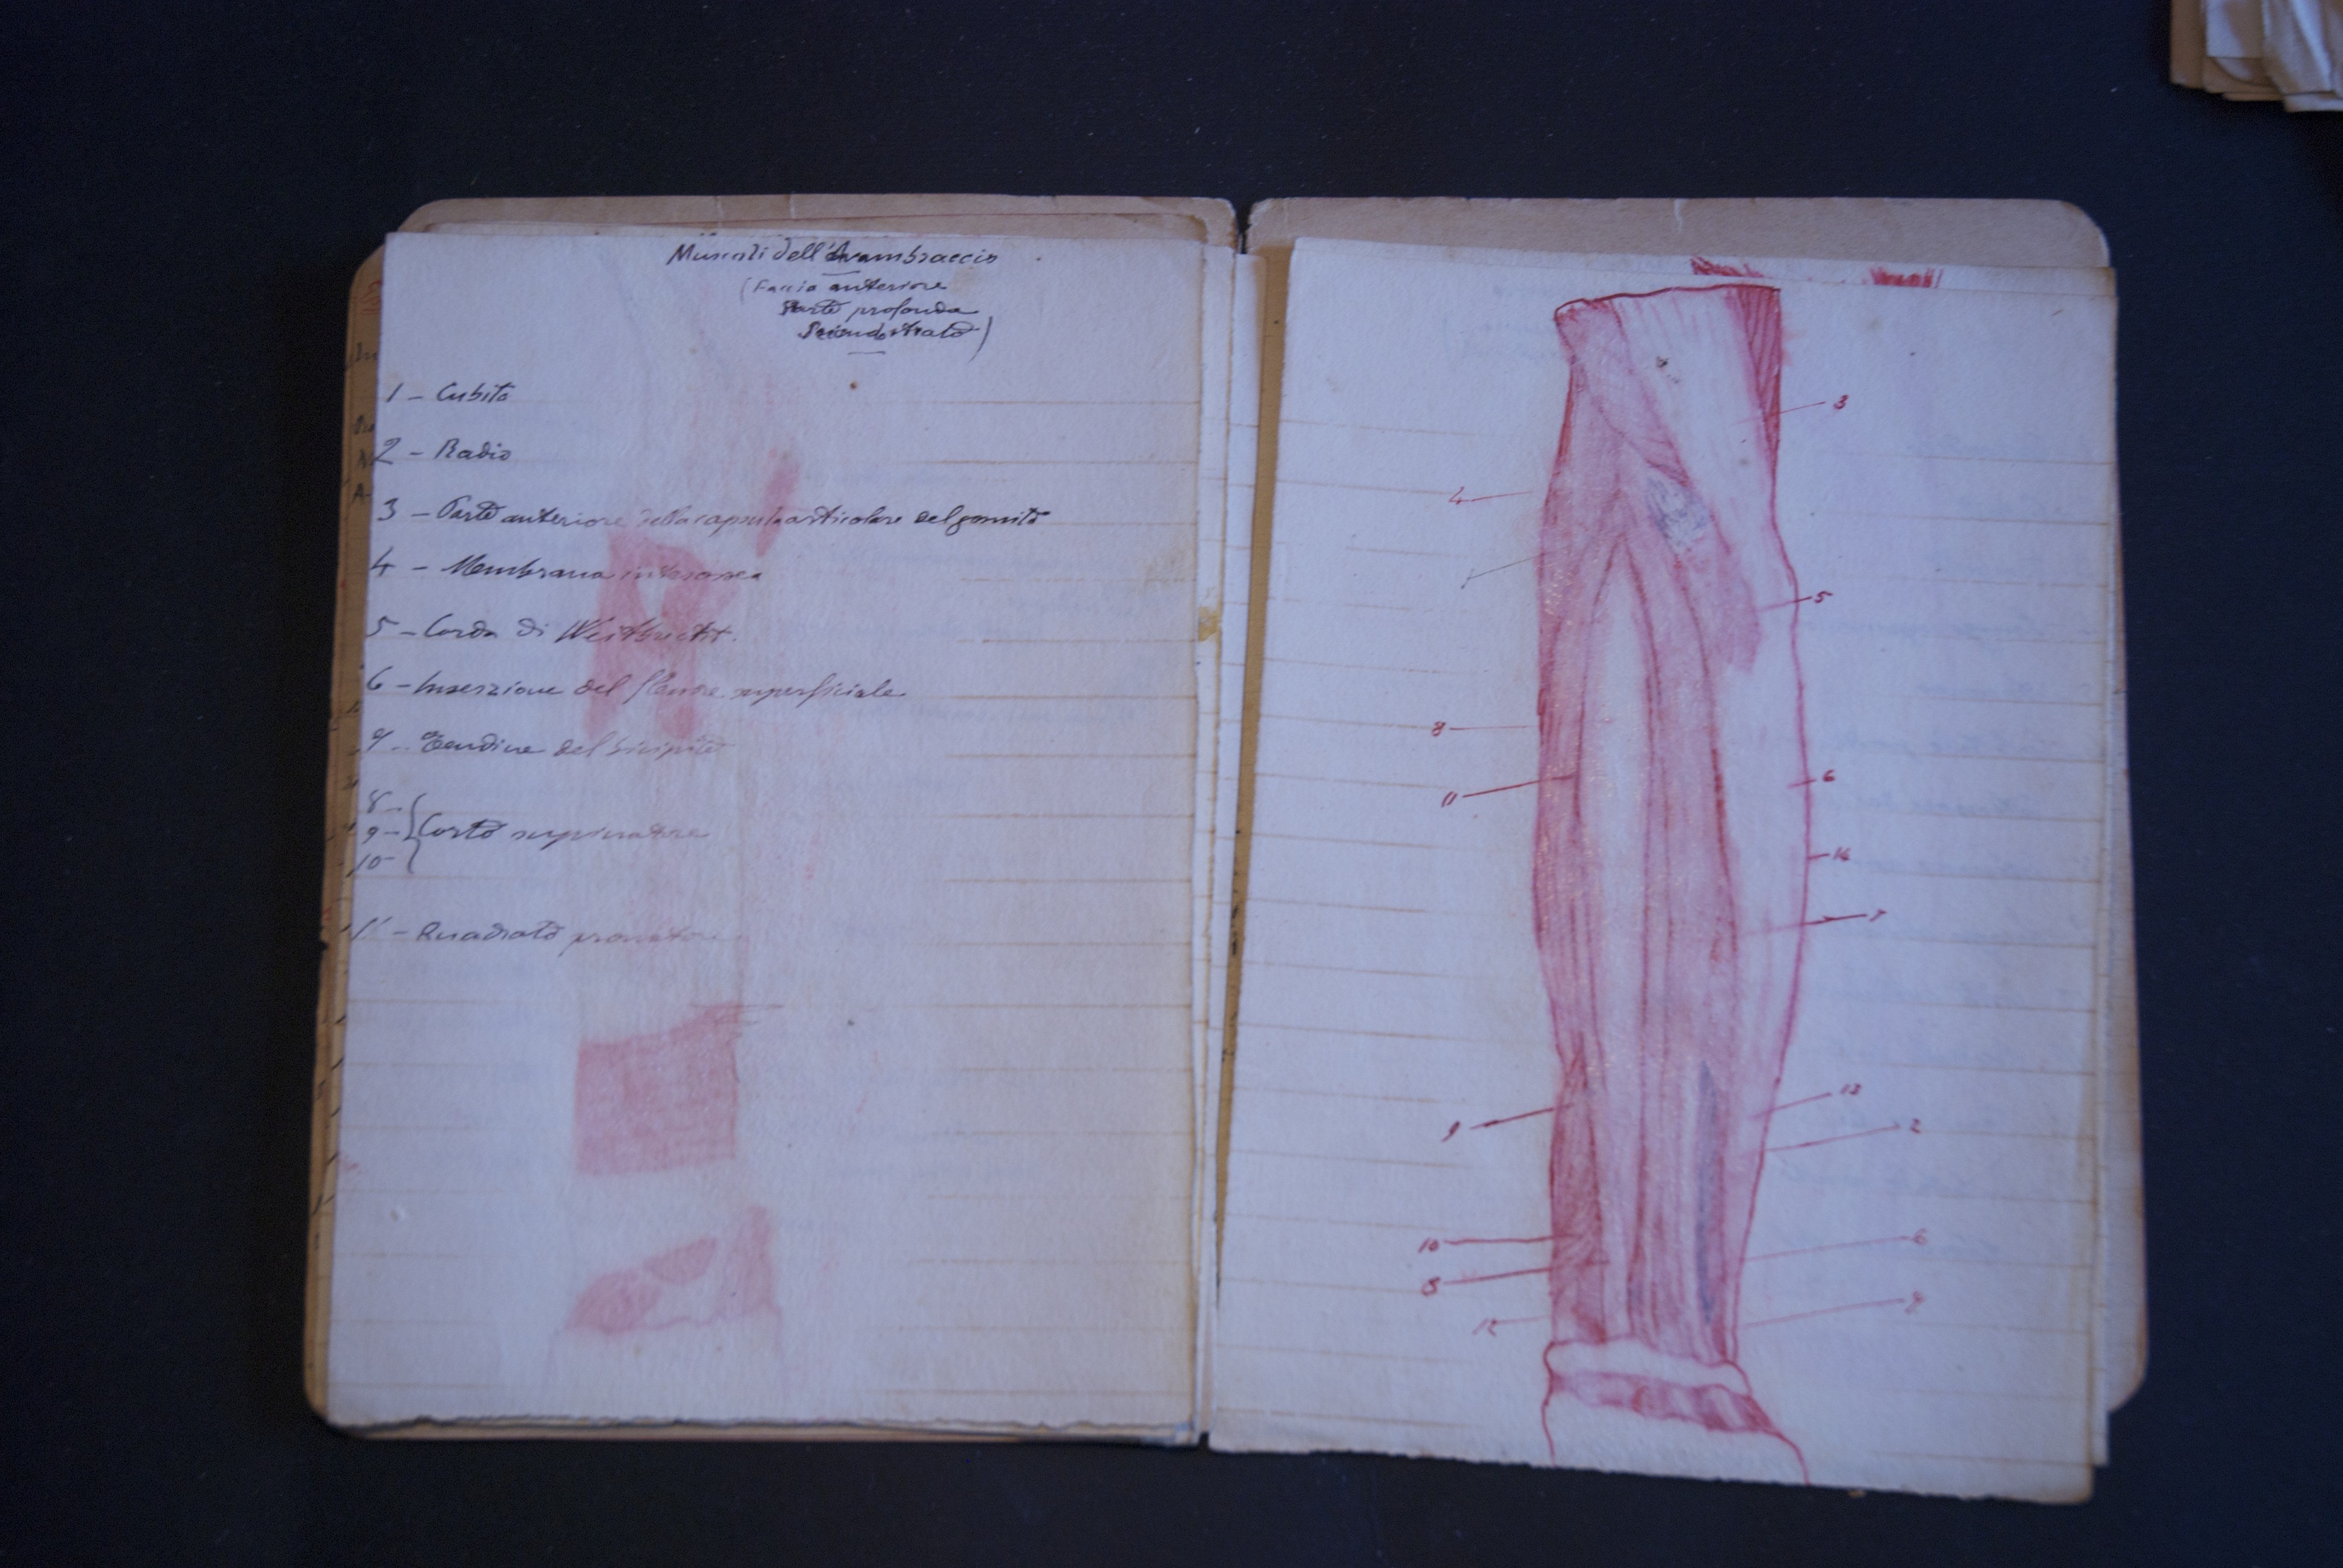 Muscoli dell'Avambraccio
(Faccia anteriore
Parte profonda
Secondo strato)
1 - Cubito
2 - Radio
3 - Parte anteriore della capsula articolare del gomito
4 - Membrana interossea
5 - Corda di Weitbrecht.
6 - Inserzione del flessore superficiale
7 - Tendine del bicipite
8 -
9 - { Corto supinatore
10 -
11 - Quadrato pronatore
3
4
5
8
6
11
14
7
13
9
2
10
6
8
12